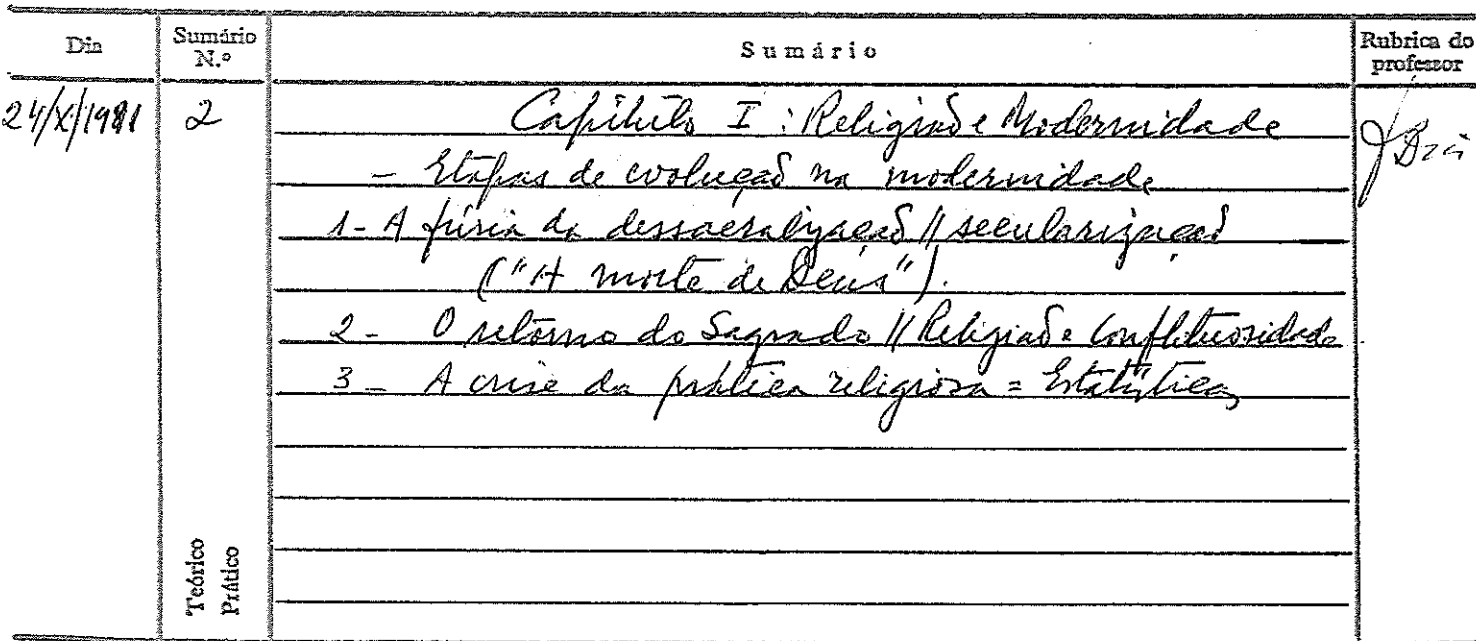 Dia
Sumário N.º
Sumário
Rubrica do professor
24/X/1981
2
Capítulo I : Religião e Modernidade
- Etapas de evolução na modernidade
1- A fúria da dessacralização // secularização
("A morte de Deus").
2- O retorno do Sagrado // Religião e Conflituosidade
3- A crise da prática religiosa = Estatísticas
Teórico
Prático